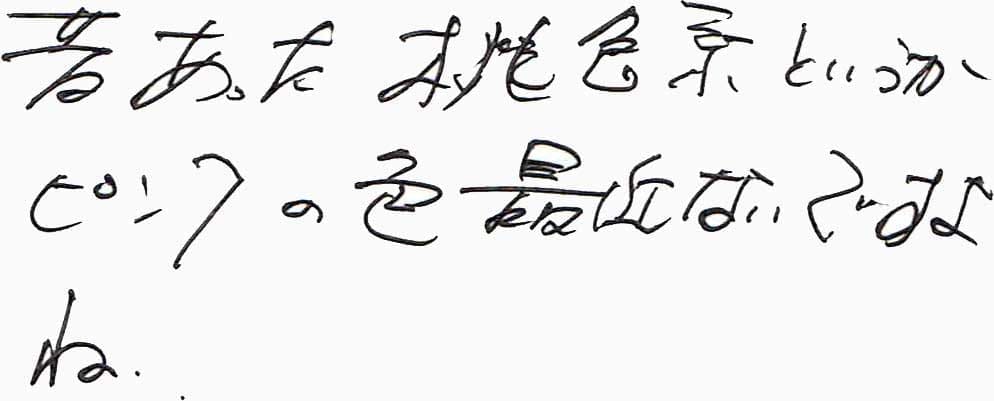 昔あった桃色系というか
ピンクの色最近ないですよ
ね.